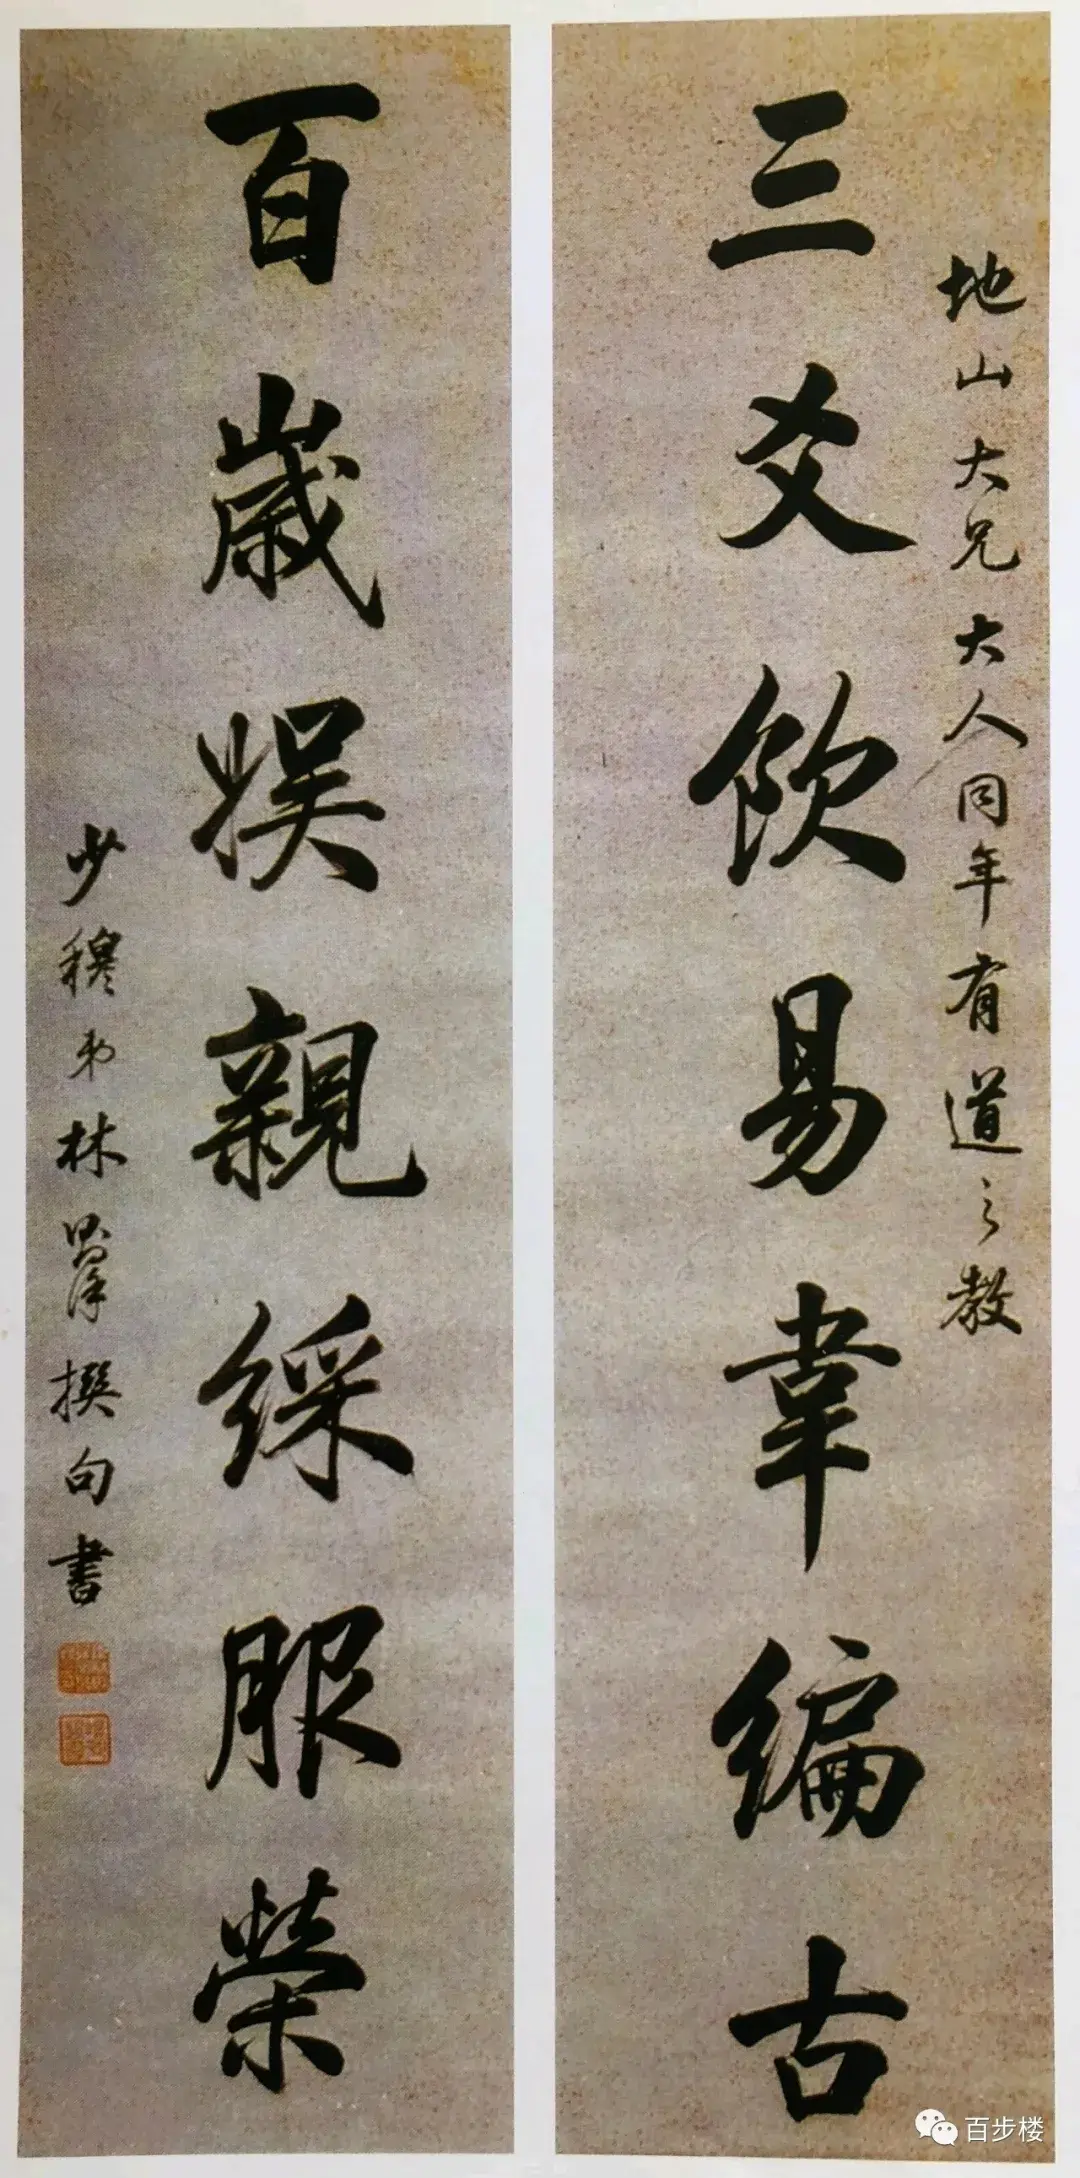 地山大兄大人同年有道之教
三爻飲易韋編古
百歲娛親綵服榮
少穆弟林則徐撰句書
百步楼